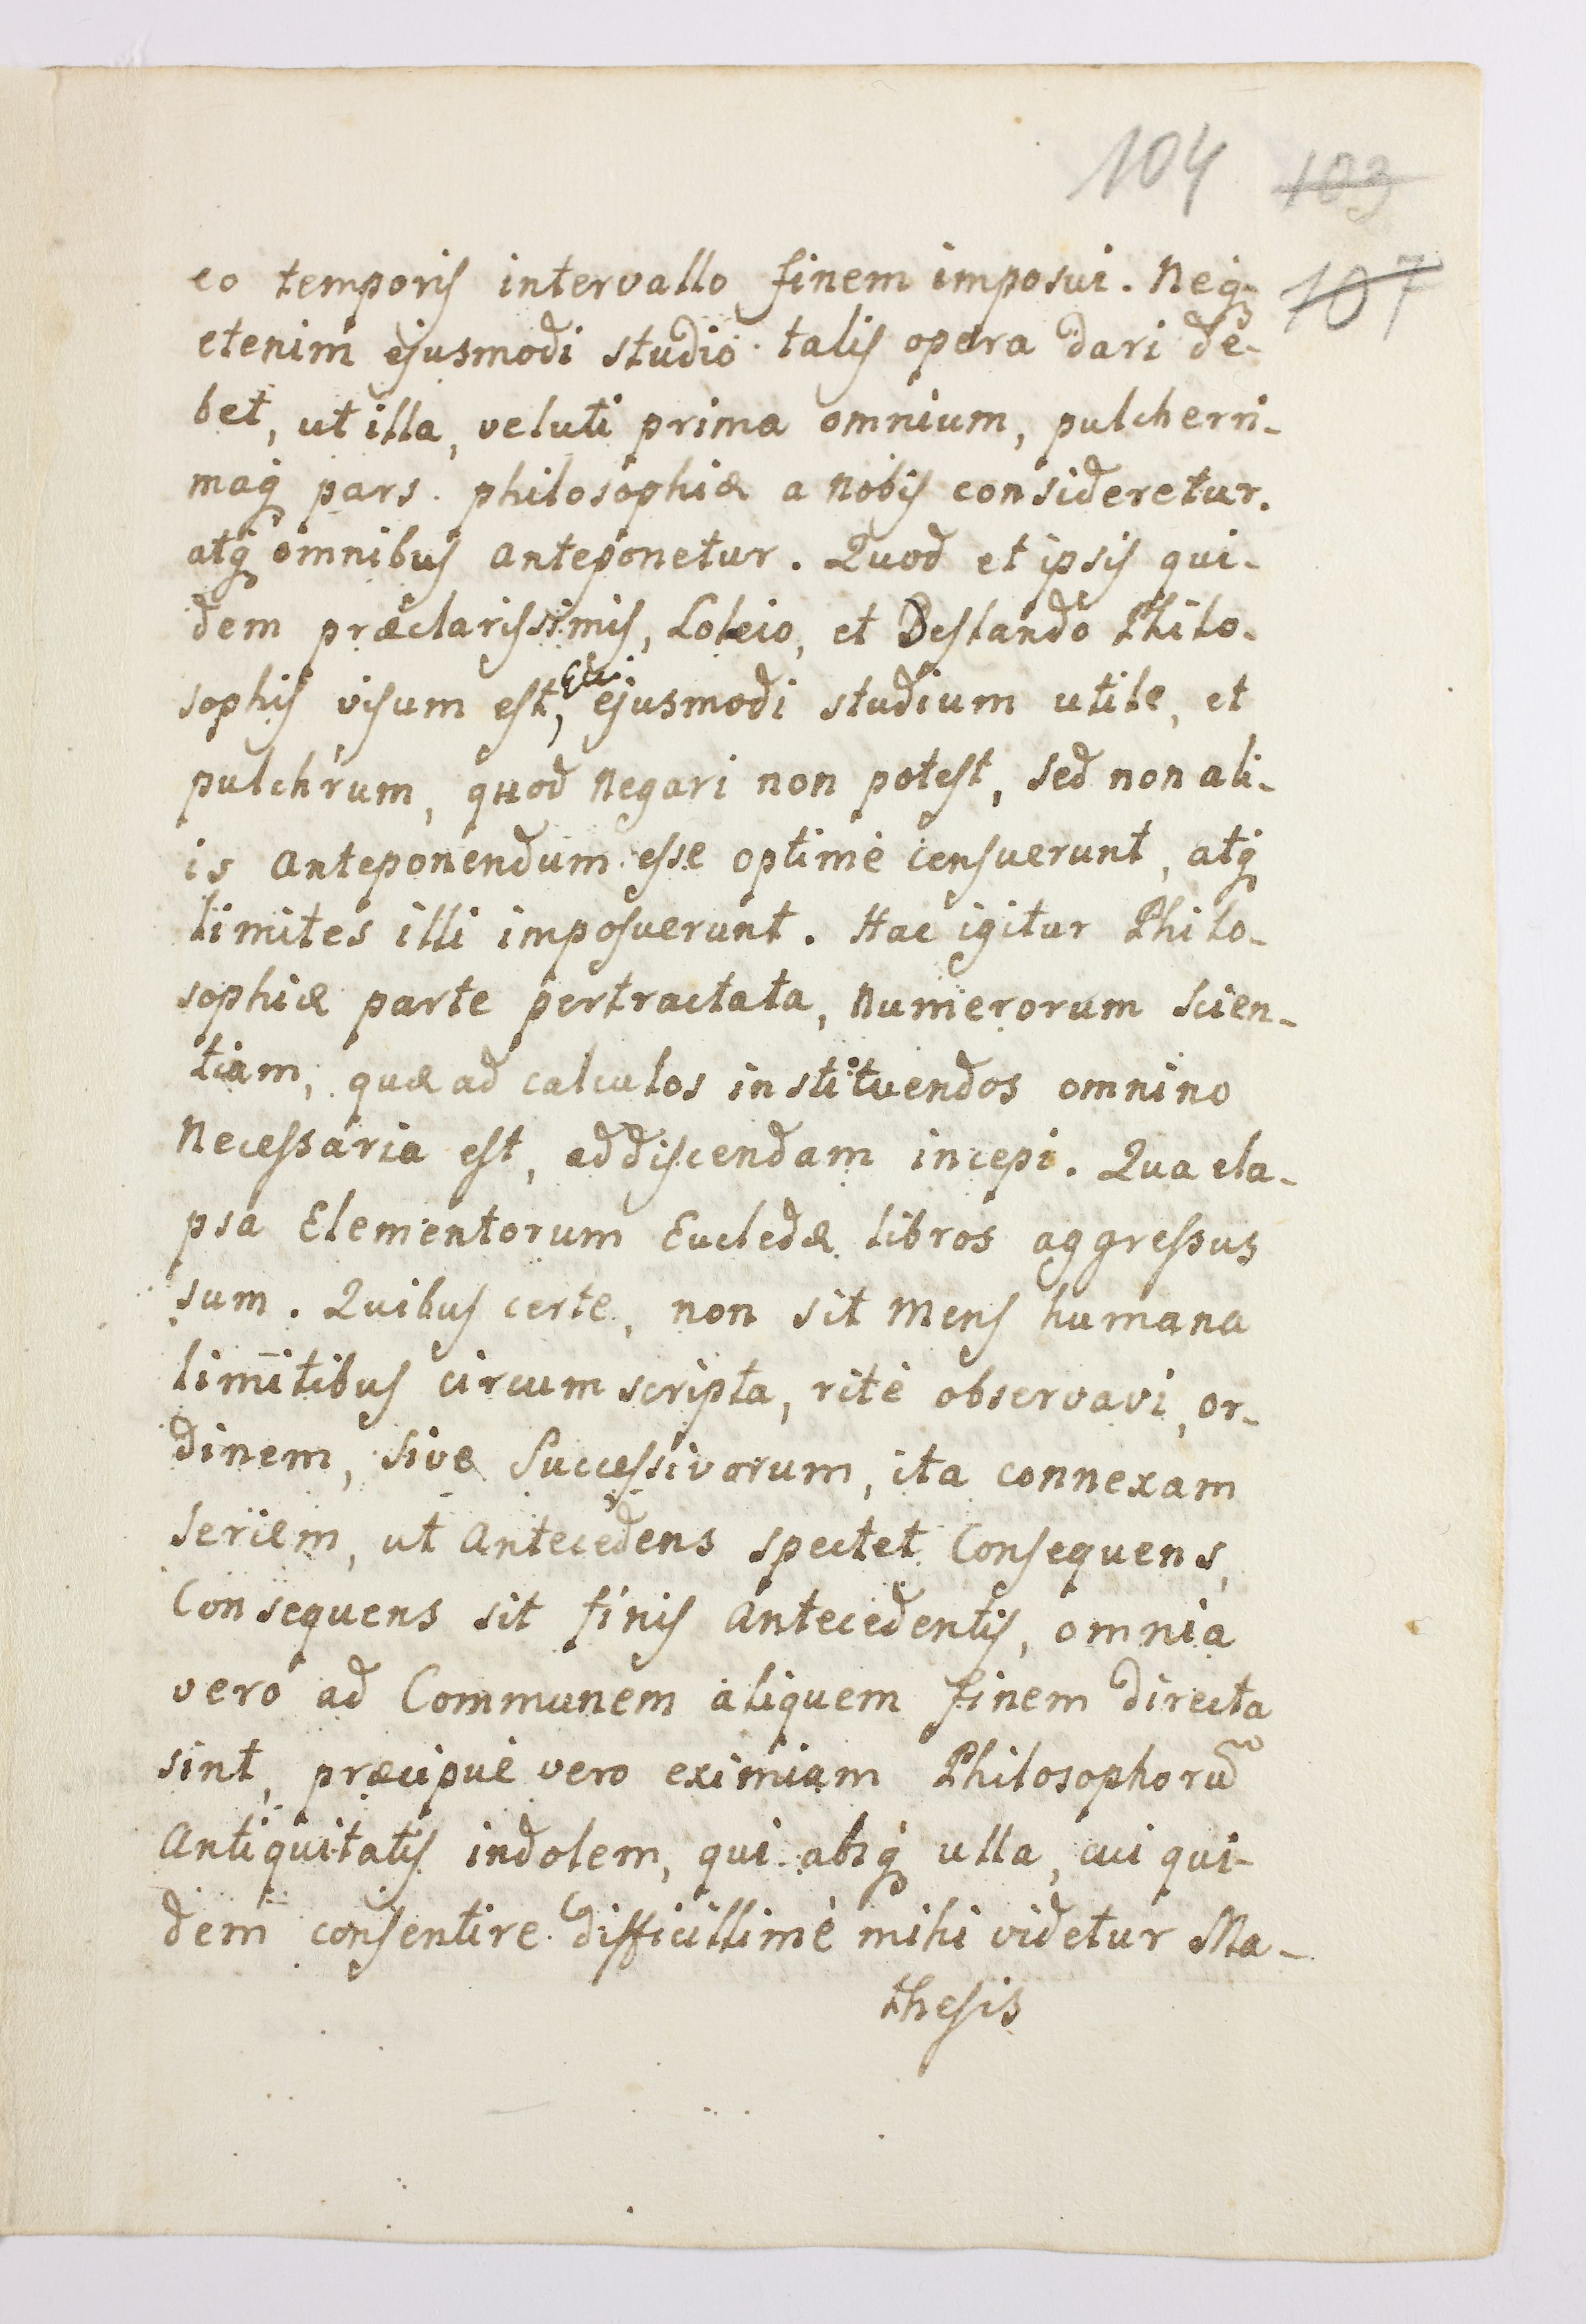 104 103
107
eo temporis intervallo finem imposui. Neq;
etenim ejusmodi studio talis opera dari de-
bet, ut illa, veluti prima omnium, pulcherri-
maq; pars philosophiæ a nobis consideretur.
atq; omnibus anteponetur. Quod et ipsis qui-
dem præclarissimis, Lokeio, et Beslando Philo-
sophis visum est, Etsi ejusmodi studium utile, et
pulchrum, quod negari non potest, sed non ali-
is anteponendum esse optimè censuerunt, atq;
limites illi imposuerunt. Hac igitur Philo-
sophiæ parte pertractata, Numerorum scien-
tiam, quæ ad calculos instituendos omnino
Necessaria est, addiscendam incepi. Qua ela-
psa Elementorum Eucledæ libros aggressus
sum. Quibus certe, non sit mens humana
limitibus circumscripta, ritè observavi, or-
dinem, sive Successivorum, ita connexam
seriem, ut Antecedens spectet Consequens,
Consequens sit finis Antecedentis, omnia
vero ad Communem aliquem finem directa
sint, præcipuè vero eximiam Philosophorũ
Antiquitatis indolem, qui absq; ulla, cui qui-
dem consentire difficillimè mihi videtur Ma-
thesis